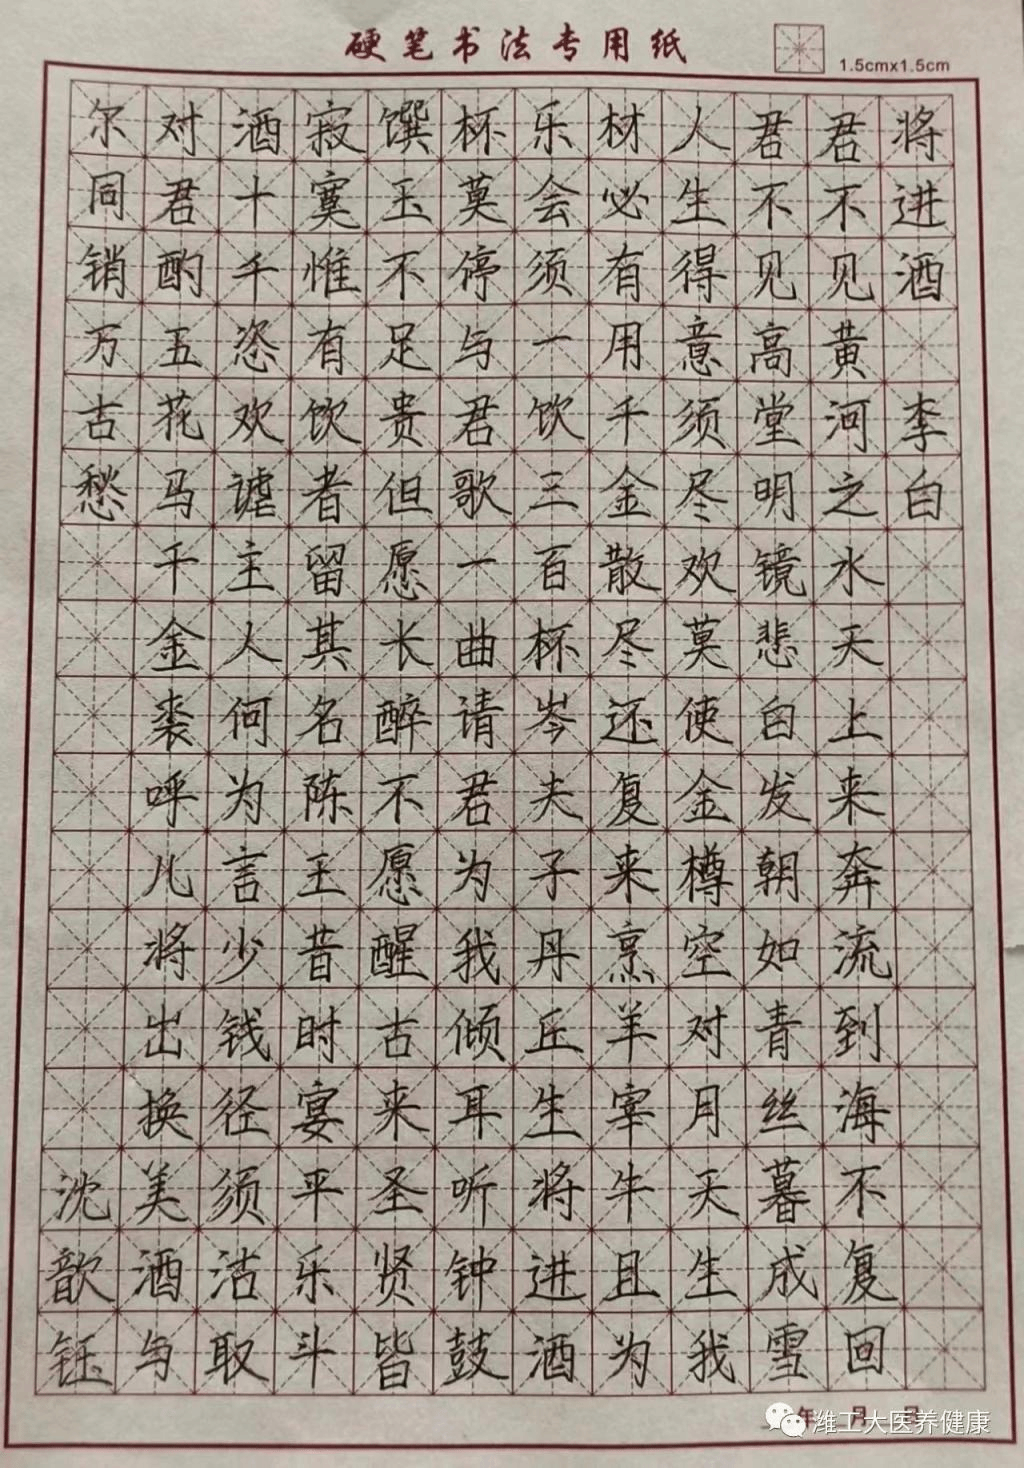 硬笔书法专用纸
1.5cmx1.5cm
将进酒 李白
君不见黄河之水天上来奔流到海不复回
君不见高堂明镜悲白发朝如青丝暮成雪
人生得意须尽欢莫使金樽空对月天生我
材必有用千金散尽还复来烹羊宰牛且为
乐会须一饮三百杯岑夫子丹丘生将进酒
杯莫停与君歌一曲请君为我倾耳听钟鼓
馔玉不足贵但愿长醉不愿醒古来圣贤皆
寂寞惟有饮者留其名陈王昔时宴平乐斗
酒十千恣欢谑主人何为言少钱径须沽取
对君酌五花马千金裘呼儿将出换美酒与
尔同销万古愁 沈歆钰
年 月 日
潍工大医养健康